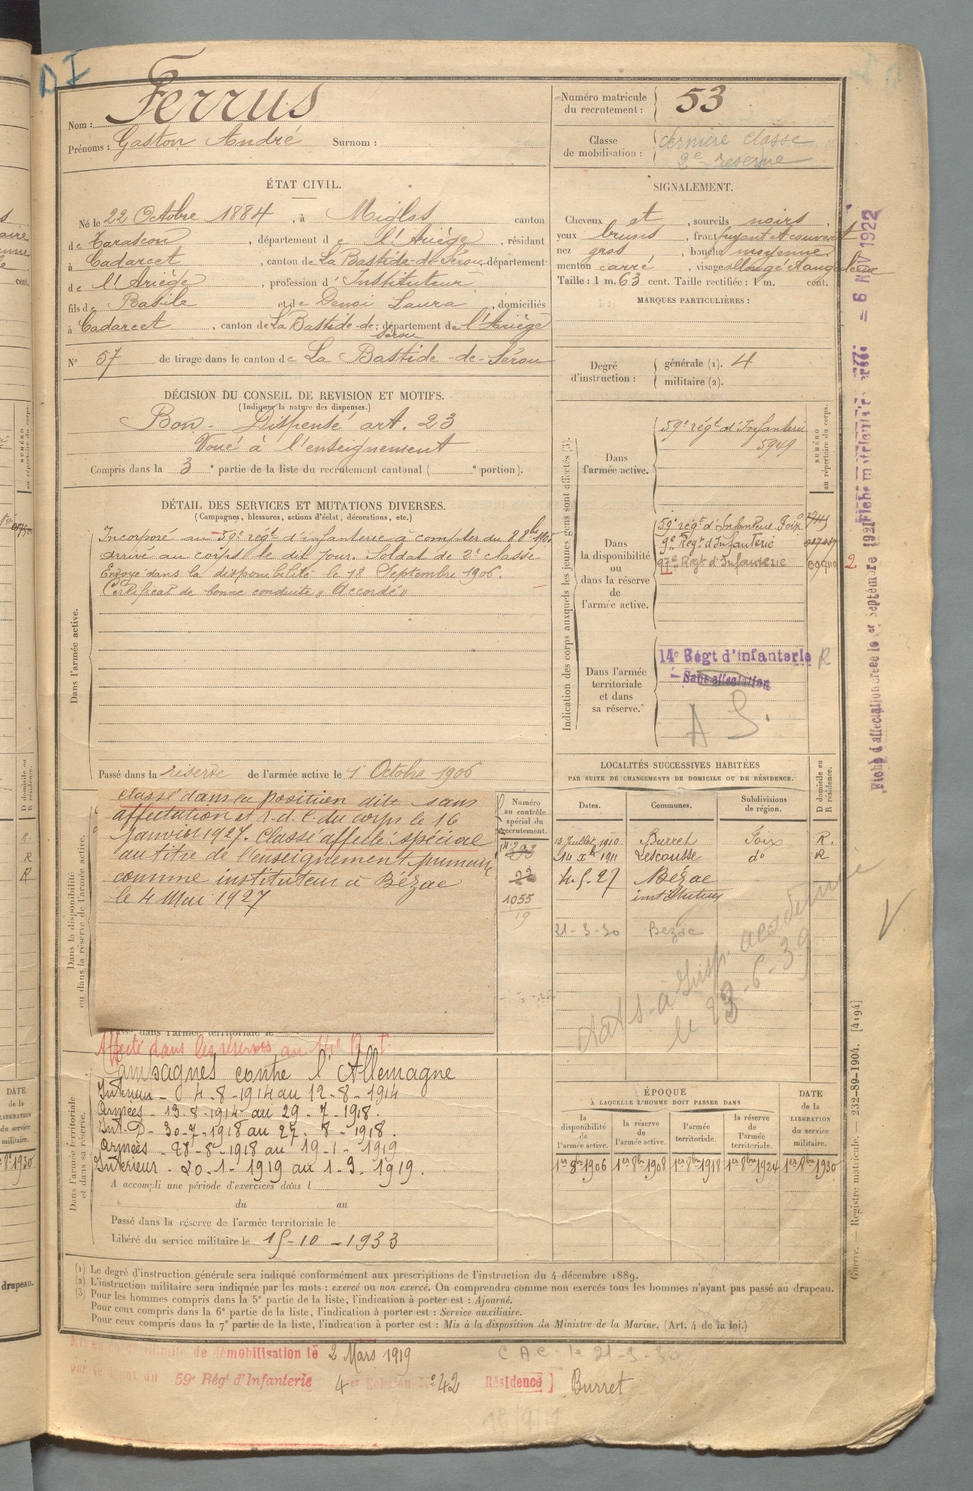 D I
Nom : Ferrus
Prénoms : Gaston André Surnom :
Numéro matricule
du recrutement : 53
Classe
de mobilisation : dernière classe
2e reserve
ÉTAT CIVIL.
Né le 22 Octobre 1884, à Miglos canton
de Tarascon, département de l'Ariège, résidant
à Cadarcet, canton de La Bastide-de-Sérou, département
de l'Ariège, profession d'Instituteur
fils de Basile et de Denoi Laura, domiciliés
à Cadarcet, canton de La Bastide-de-Sérou, département de l'Ariège
N° 57 de tirage dans le canton de La Bastide-de-Sérou
SIGNALEMENT.
Cheveux et, sourcils noirs
yeux bruns, front fuyant et couvert
nez gros, bouche moyenne
menton carré, visage allongé
Taille : 1 m. 63 cent. Taille rectifiée : 1 m. cent.
MARQUES PARTICULIÈRES :
Degré
d'instruction :
générale (1). 4
militaire (2).
DÉCISION DU CONSEIL DE REVISION ET MOTIFS.
(Indiquer la nature des dispenses.)
Bon - Dispensé art. 23
Voué à l'enseignement
Compris dans la 3e partie de la liste du recrutement cantonal ( e portion).
DÉTAIL DES SERVICES ET MUTATIONS DIVERSES.
(Campagnes, blessures, actions d'éclat, décorations, etc.)
Dans l'armée active.
Incorporé au 59e régt d'infanterie à compter du 8
Arrivé au corps le dit jour. Soldat de 2e classe
Envoyé dans la disponibilité le 18 Septembre 1906.
Certificat de bonne conduite « Accordé »
Passé dans la réserve de l'armée active le 1er Octobre 1906
Indication des corps auxquels les jeunes gens sont affectés (3).
NUMÉRO
au répertoire du corps.
Dans
l'armée active.
59e régt d'Infanterie
5949
Dans
la disponibilité
ou
dans la réserve
de
l'armée active.
59e régt d'Infanterie Foix
9e Régt d'Infanterie
97e Régt d'Infanterie
2
Dans l'armée
territoriale
et dans
sa réserve.
14e Régt d'infanterie R
Sans affectation
A S.
Fiche d'affectation créée le 1er Septembre 1921
Fiche matricule
6 NOV 1922
LOCALITÉS SUCCESSIVES HABITÉES
PAR SUITE DE CHANGEMENTS DE DOMICILE OU DE RÉSIDENCE.
Dates. Communes. Subdivisions
de région.
D domicile ou
R résidence.
13 Juillet 1910 Burret Foix R.
14 Xbre 1911 Lescousse do R
4.5.27 Bézac
instituteur
21-3-30 Bézac
le 23-6-39
Dans la disponibilité
ou dans la réserve de l'armée active.
classé dans la position dite sans
affectation et r.d.c. du corps le 16
Janvier 1927. Classé affecté spécial
au titre de l'enseignement primaire
comme instituteur à Bézac
le 4 Mai 1927
Numéro
au contrôle
spécial du
recrutement.
22
1055
19
Passé dans l'armée territoriale le
Affecté dans les réserves au 14e R. I.
Dans l'armée territoriale
et dans sa réserve.
Campagnes contre l'Allemagne
Intérieur - 4-8-1914 au 12-8-1914
Armées - 13-8-1914 au 29-7-1918.
Int. D - 30-7-1918 au 27-8-1918.
Armées - 28-8-1918 au 19-1-1919
Intérieur - 20-1-1919 au 1-3-1919.
A accompli une période d'exercices dans l
du au
Passé dans la réserve de l'armée territoriale le
Libéré du service militaire le 15-10-1933
ÉPOQUE
À LAQUELLE L'HOMME DOIT PASSER DANS
la
disponibilité
de
l'armée active.
la réserve
de
l'armée active.
l'armée
territoriale.
la réserve
de
l'armée
territoriale.
DATE
de la
LIBÉRATION
du service
militaire.
1er 8bre 1906 1er 8bre 1908 1er 8bre 1918 1er 8bre 1924 1er 8bre 1930
Guerre. — Registre matricule. — 232-89-1904. [4194]
(1) Le degré d'instruction générale sera indiqué conformément aux prescriptions de l'instruction du 4 décembre 1889.
(2) L'instruction militaire sera indiquée par les mots : exercé ou non exercé. On comprendra comme non exercés tous les hommes n'ayant pas passé au drapeau.
(3) Pour les hommes compris dans la 5e partie de la liste, l'indication à porter est : Ajourné.
Pour ceux compris dans la 6e partie de la liste, l'indication à porter est : Service auxiliaire.
Pour ceux compris dans la 7e partie de la liste, l'indication à porter est : Mis à la disposition du Ministre de la Marine. (Art. 4 de la loi.)
de démobilisation le 2 Mars 1919
C A C - le 21-3-30
par le dépôt du 59e Rég' d'Infanterie 4e Echelon N° 42 Résidence] Burret
DATE
de la
LIBÉRATION
du service
militaire.
drapeau.